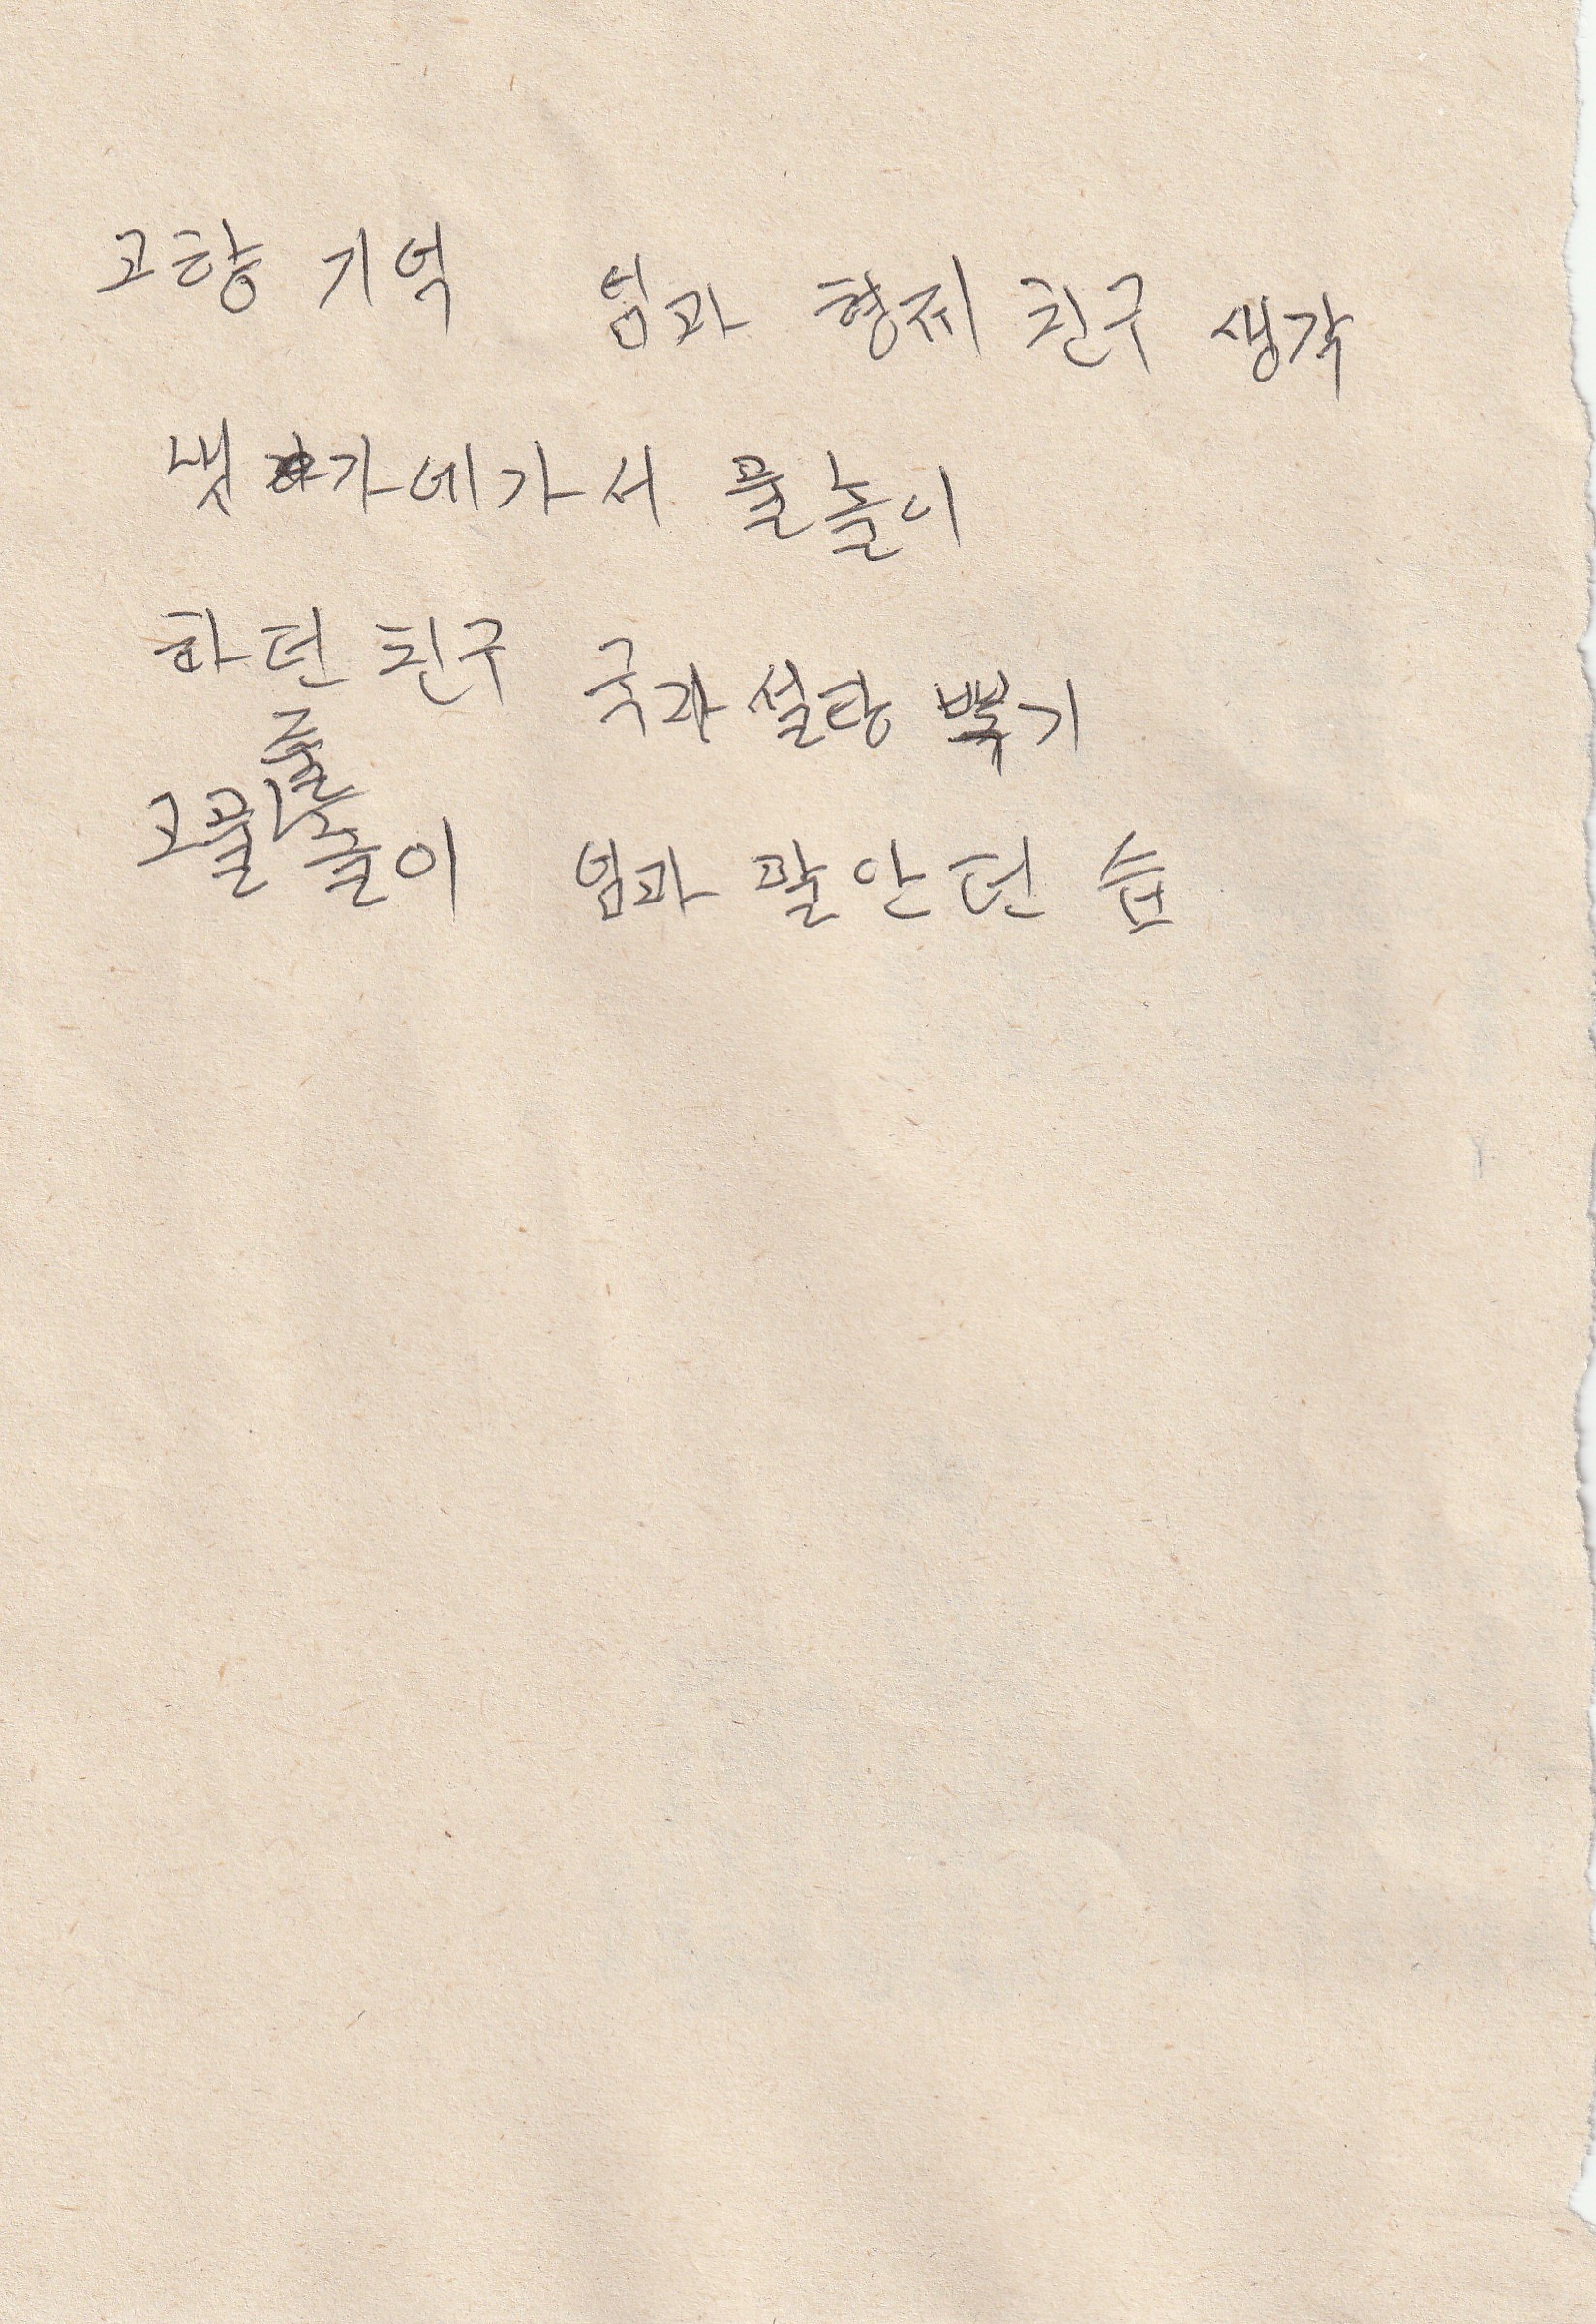 고향 기억 엄과 형제 친구 생각
냇가에가서 물놀이
하던 친구 국과 설탕 뽁기
코물 줄줄이 엄과 팔안던 습